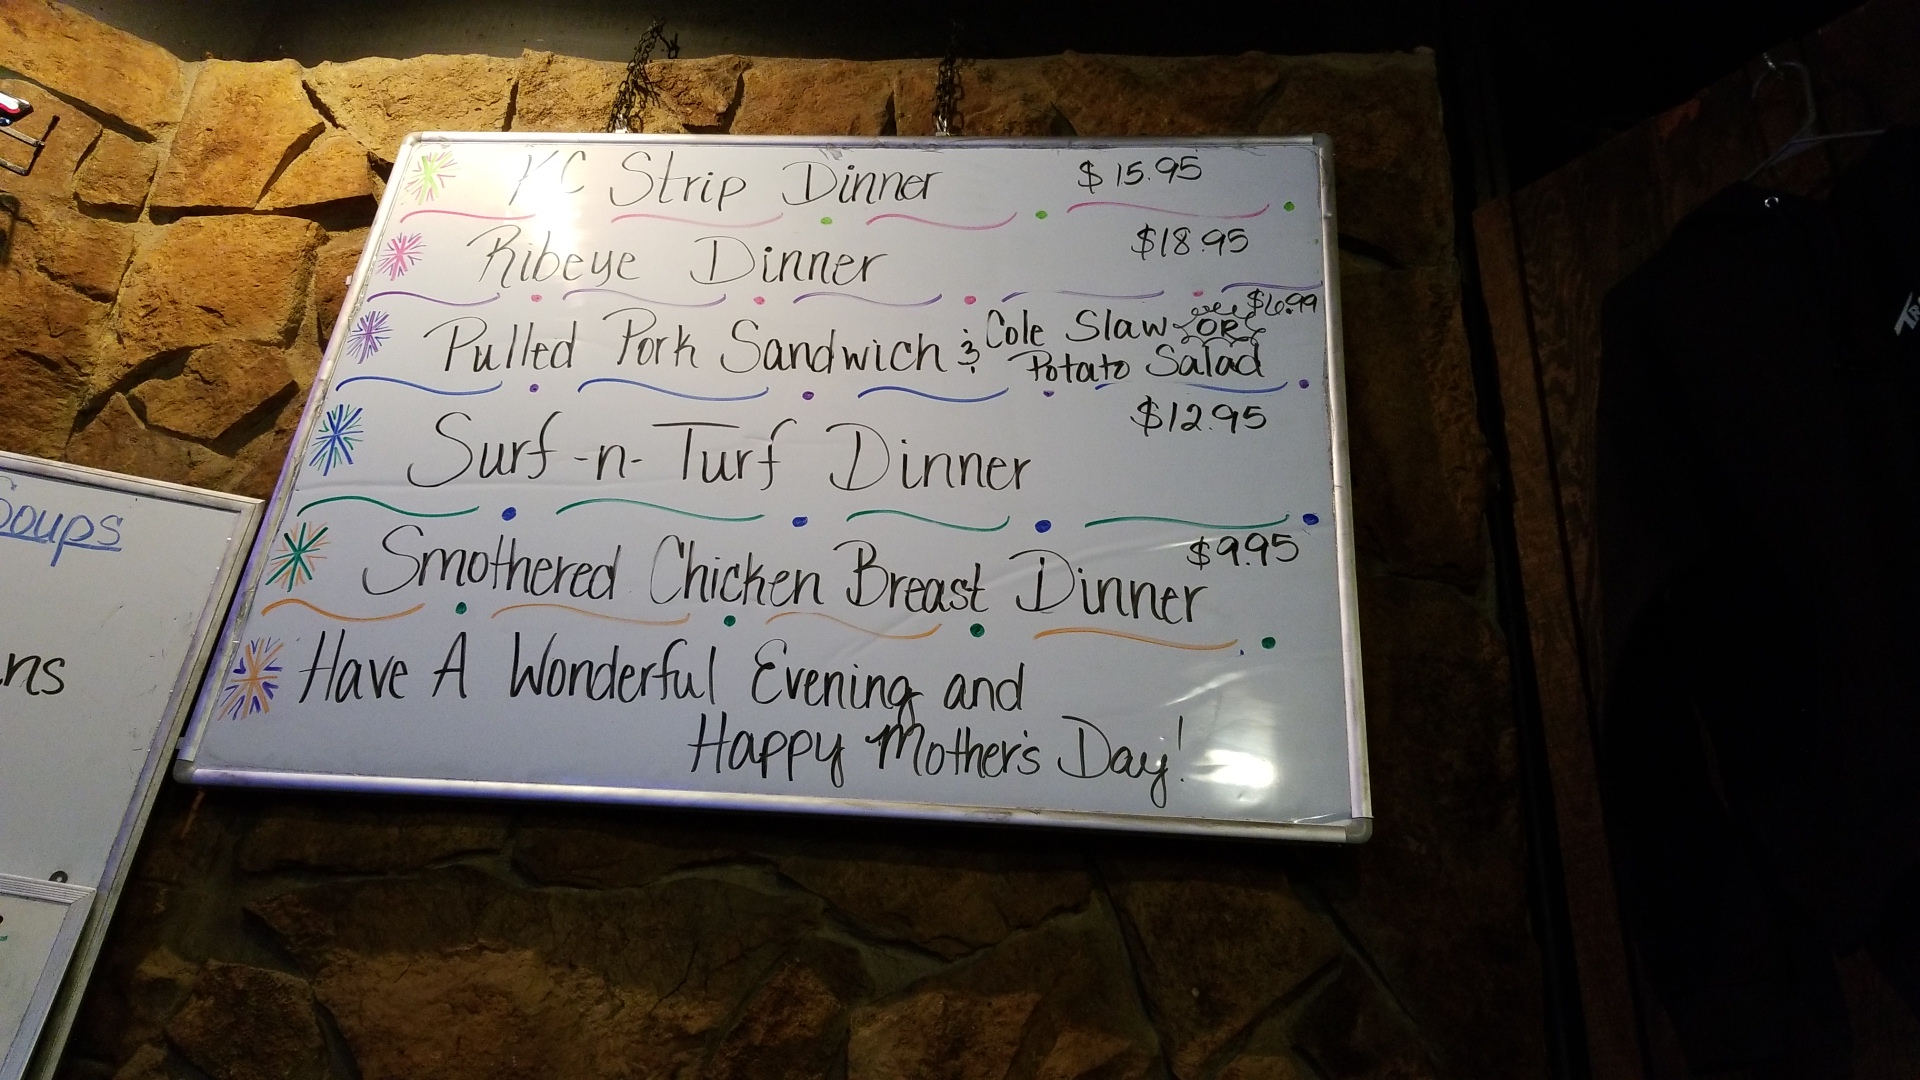 KC Strip Dinner $15.95
Ribeye Dinner $18.95
Pulled Pork Sandwich & Cole Slaw OR $6.99
Potato Salad
Surf-n-Turf Dinner $12.95
Smothered Chicken Breast Dinner $9.95
Have A Wonderful Evening and
Happy Mother's Day!
Soups
ns